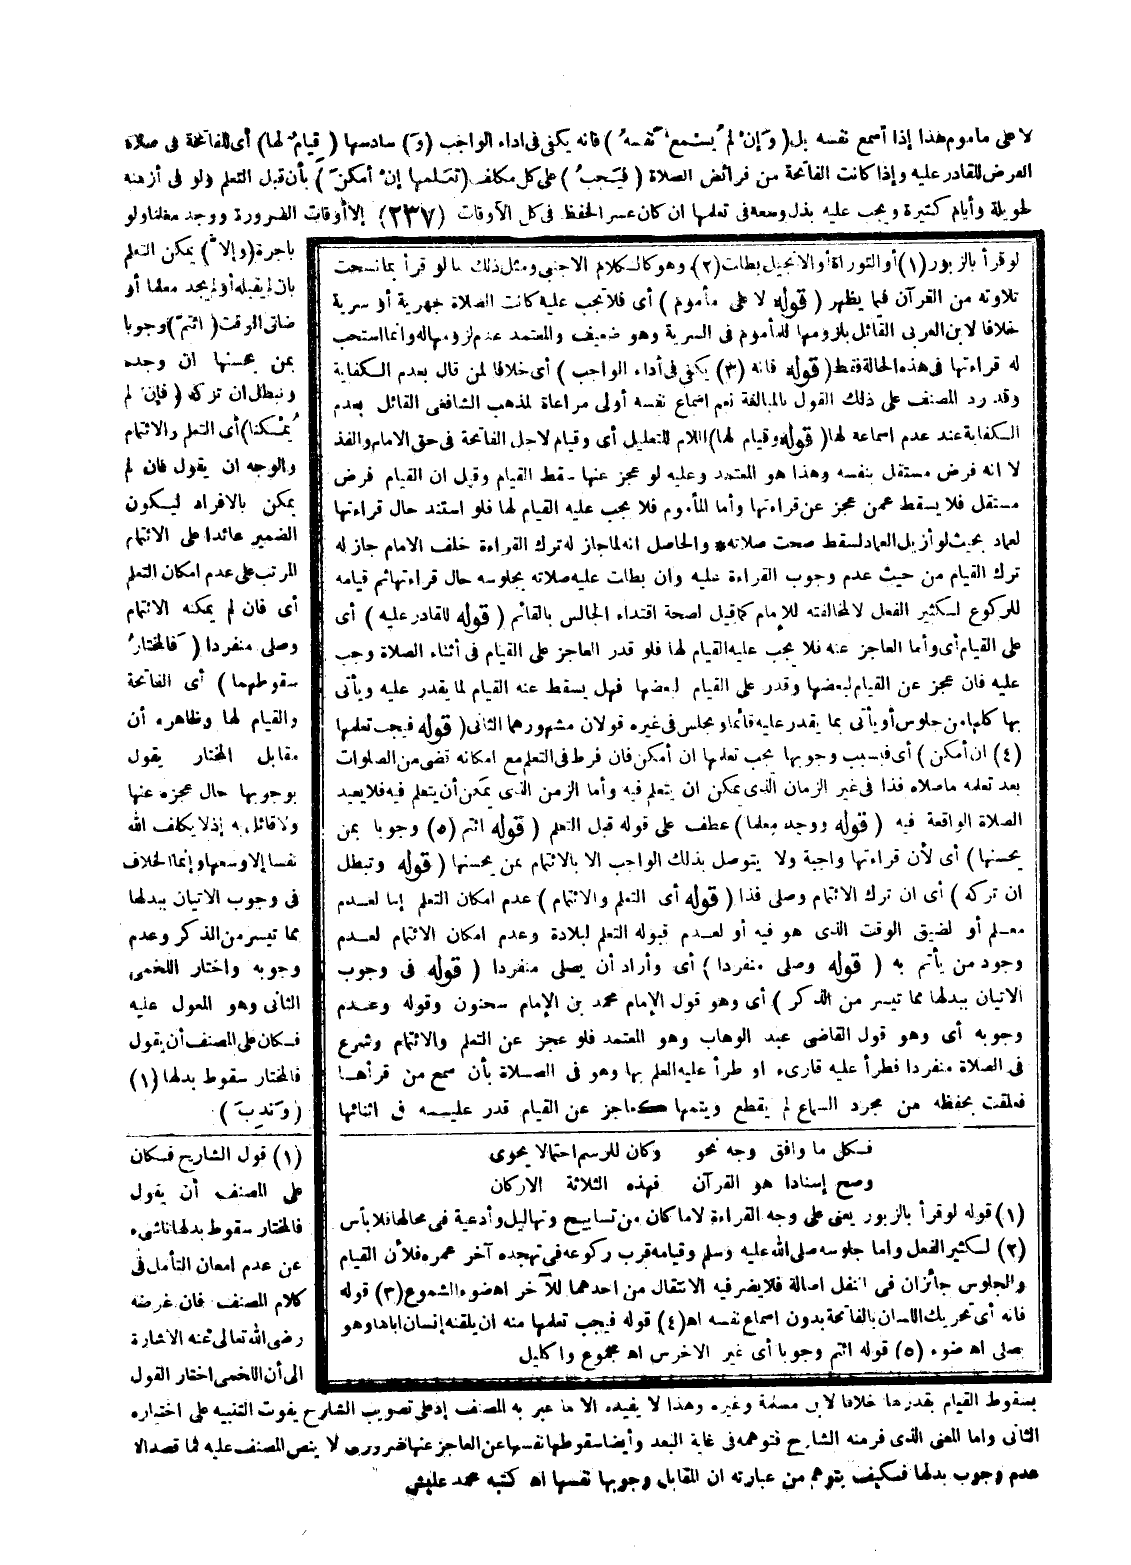 لا على مأموم هذا إذا أسمع نفسه بل (وَإنْ لمْ يُسْمعْ نَفسهُ) فانه يكفى فى اداء الواجب (وَ) سادسها (قيامٌ لها) أى للفاتحة فى صلاة
الفرض للقادر عليه وإذا كانت الفاتحة من فرائض الصلاة (فيَجبُ) على كل مكلف (تعَلمها إنْ أمكنَ) بأن قبل التعلم ولو فى أزمنة
طويلة وأيام كثيرة ويجب عليه بذل وسعه فى تعلمها ان كان عسر الحفظ فى كل الأوقات (٢٣٧) إلا أوقات الضرورة ووجد معلما ولو
باجرة (وإلاّ) يمكن التعلم
بان لم يقبله أو لم يجد معلما أو
ضاق الوقت (ائتمّ) وجوبا
بمن يحسنها ان وجده
وتبطل ان تركه (فإنْ لم
يُمْكنا) أى التعلم والائتمام
والوجه ان يقول فان لم
يمكن بالافراد ليكون
الضمير عائدا على الائتمام
المرتب على عدم امكان التعلم
أى فان لم يمكنه الائتمام
وصلى منفردا (فَالمختارُ
سقوطهما) أى الفاتحة
والقيام لها وظاهره أن
مقابل المختار يقول
بوجوبها حال عجزه عنها
ولا قائل به إذ لا يكلف الله
نفسا إلا وسعها وإنما الخلاف
فى وجوب الاتيان ببدلها
مما تيسر من الذكر وعدم
وجوبه واختار اللخمى
الثانى وهو المعول عليه
فكان على المصنف أن يقول
فالمختار سقوط بدلها (١)
(وَنُدِبَ)
لو قرأ بالزبور (١) أو التوراة أو الانجيل بطلت (٢) وهو كالكلام الاجنبى ومثل ذلك ما لو قرأ بما نسخت
تلاوته من القرآن فيما يظهر (قوله لا على مأموم) أى فلا تجب عليه كانت الصلاة جهرية أو سرية
خلافا لابن العربى القائل بلزومها للمأموم فى السرية وهو ضعيف والمعتمد عدم لزومها له وانما استحب
له قراءتها فى هذه الحالة فقط (قوله فانه (٣) يكفى فى أداء الواجب) أى خلافا لمن قال بعدم الكفاية
وقد رد المصنف على ذلك القول بالمبالغة نعم اسماع نفسه أولى مراعاة لمذهب الشافعى القائل بعدم
الكفاية عند عدم اسماعه لها (قوله وقيام لها) اللام للتعليل أى وقيام لاجل الفاتحة فى حق الامام والفذ
لا انه فرض مستقل بنفسه وهذا هو المعتمد وعليه لو عجز عنها سقط القيام وقيل ان القيام فرض
مستقل فلا يسقط عمن عجز عن قراءتها وأما المأموم فلا يجب عليه القيام لها فلو استند حال قراءتها
لعماد بحيث لو أزيل العماد لسقط صحت صلاته* والحاصل انه لما جاز له ترك القراءة خلف الامام جاز له
ترك القيام من حيث عدم وجوب القراءة عليه وان بطلت عليه صلاته بجلوسه حال قراءتها ثم قيامه
للركوع لكثير الفعل لا لمخالفته للإمام كما قيل لصحة اقتداء الجالس بالقائم (قوله للقادر عليه) أى
على القيام أى وأما العاجز عنه فلا يجب عليه القيام لها فلو قدر العاجز على القيام فى أثناء الصلاة وجب
عليه فان عجز عن القيام لبعضها وقدر على القيام لبعضها فهل يسقط عنه القيام لما يقدر عليه ويأتى
بها كلها من جلوس أو يأتى بما يقدر عليه قائما ويجلس فى غيره قولان مشهورهما الثانى (قوله فيجب تعلمها
(٤) ان أمكن) أى فبسبب وجوبها يجب تعلمها ان أمكن فان فرط فى التعلم مع امكانه قضى من الصلوات
بعد تعلمه ما صلاه فذا فى غير الزمان الذى يمكن ان يتعلم فيه وأما الزمن الذى يمكن أن يتعلم فيه فلا يعيد
الصلاة الواقعة فيه (قوله ووجد معلما) عطف على قوله قبل التعلم (قوله ائتم (٥) وجوبا بمن
يحسنها) أى لأن قراءتها واجبة ولا يتوصل بذلك الواجب الا بالائتمام بمن يحسنها (قوله وتبطل
ان تركه) أى ان ترك الائتمام وصلى فذا (قوله أى التعلم والائتمام) عدم امكان التعلم إما لعدم
معلم أو لضيق الوقت الذى هو فيه أو لعدم قبوله التعلم لبلادة وعدم امكان الائتمام لعدم
وجود من يأتم به (قوله وصلى منفردا) أى وأراد أن يصلى منفردا (قوله فى وجوب
الاتيان ببدلها مما تيسر من الذكر) أى وهو قول الإمام محمد بن الإمام سحنون وقوله وعدم
وجوبه أى وهو قول القاضى عبد الوهاب وهو المعتمد فلو عجز عن التعلم والائتمام وشرع
فى الصلاة منفردا فطرأ عليه قارىء او طرأ عليه العلم بها وهو فى الصلاة بأن سمع من قرأها
فعلقت بحفظه من مجرد السماع لم يقطع ويتمها كعاجز عن القيام قدر عليه فى اثنائها
فكل ما وافق وجه نحو وكان للرسم احتمالا يحوى
وصح إسنادا هو القرآن فهذه الثلاثة الاركان
(١) قوله لو قرأ بالزبور يعنى على وجه القراءة لا ما كان من تسابيح وتهاليل وأدعية فى محالها فلا بأس
(٢) لكثير الفعل واما جلوسه صلى الله عليه وسلم وقيامه قرب ركوعه فى تهجده آخر عمره فلأن القيام
والجلوس جائزان فى النفل اصالة فلا يضر فيه الانتقال من احدهما للآخر اه ضوء الشموع (٣) قوله
فانه أى تحريك اللسان بالفاتحة بدون اسماع نفسه اه (٤) قوله فيجب تعلمها منه ان يلقنه إنسان اياها وهو
يصلى اه ضوء (٥) قوله ائتم وجوبا أى غير الاخرس اه مجموع واكليل
(١) قول الشارح فكان
على المصنف أن يقول
فالمختار سقوط بدلها ناشىء
عن عدم امعان التأمل فى
كلام المصنف فان غرضه
رضى الله تعالى عنه الاشارة
الى أن اللخمى اختار القول
بسقوط القيام بقدرها خلافا لابن مسلمة وغيره وهذا لا يفيده الا ما عبر به المصنف إذ على تصويب الشارح يفوت التنبيه على اختياره
الثانى واما المعنى الذى فر منه الشارح فتوهمه فى غاية البعد وأيضا سقوطها نفسها عن العاجز عنها ضرورى لا ينص المصنف عليه فما قصد الا
عدم وجوب بدلها فكيف يتوهم من عبارته ان المقابل وجوبها نفسها اه كتبه محمد عليش